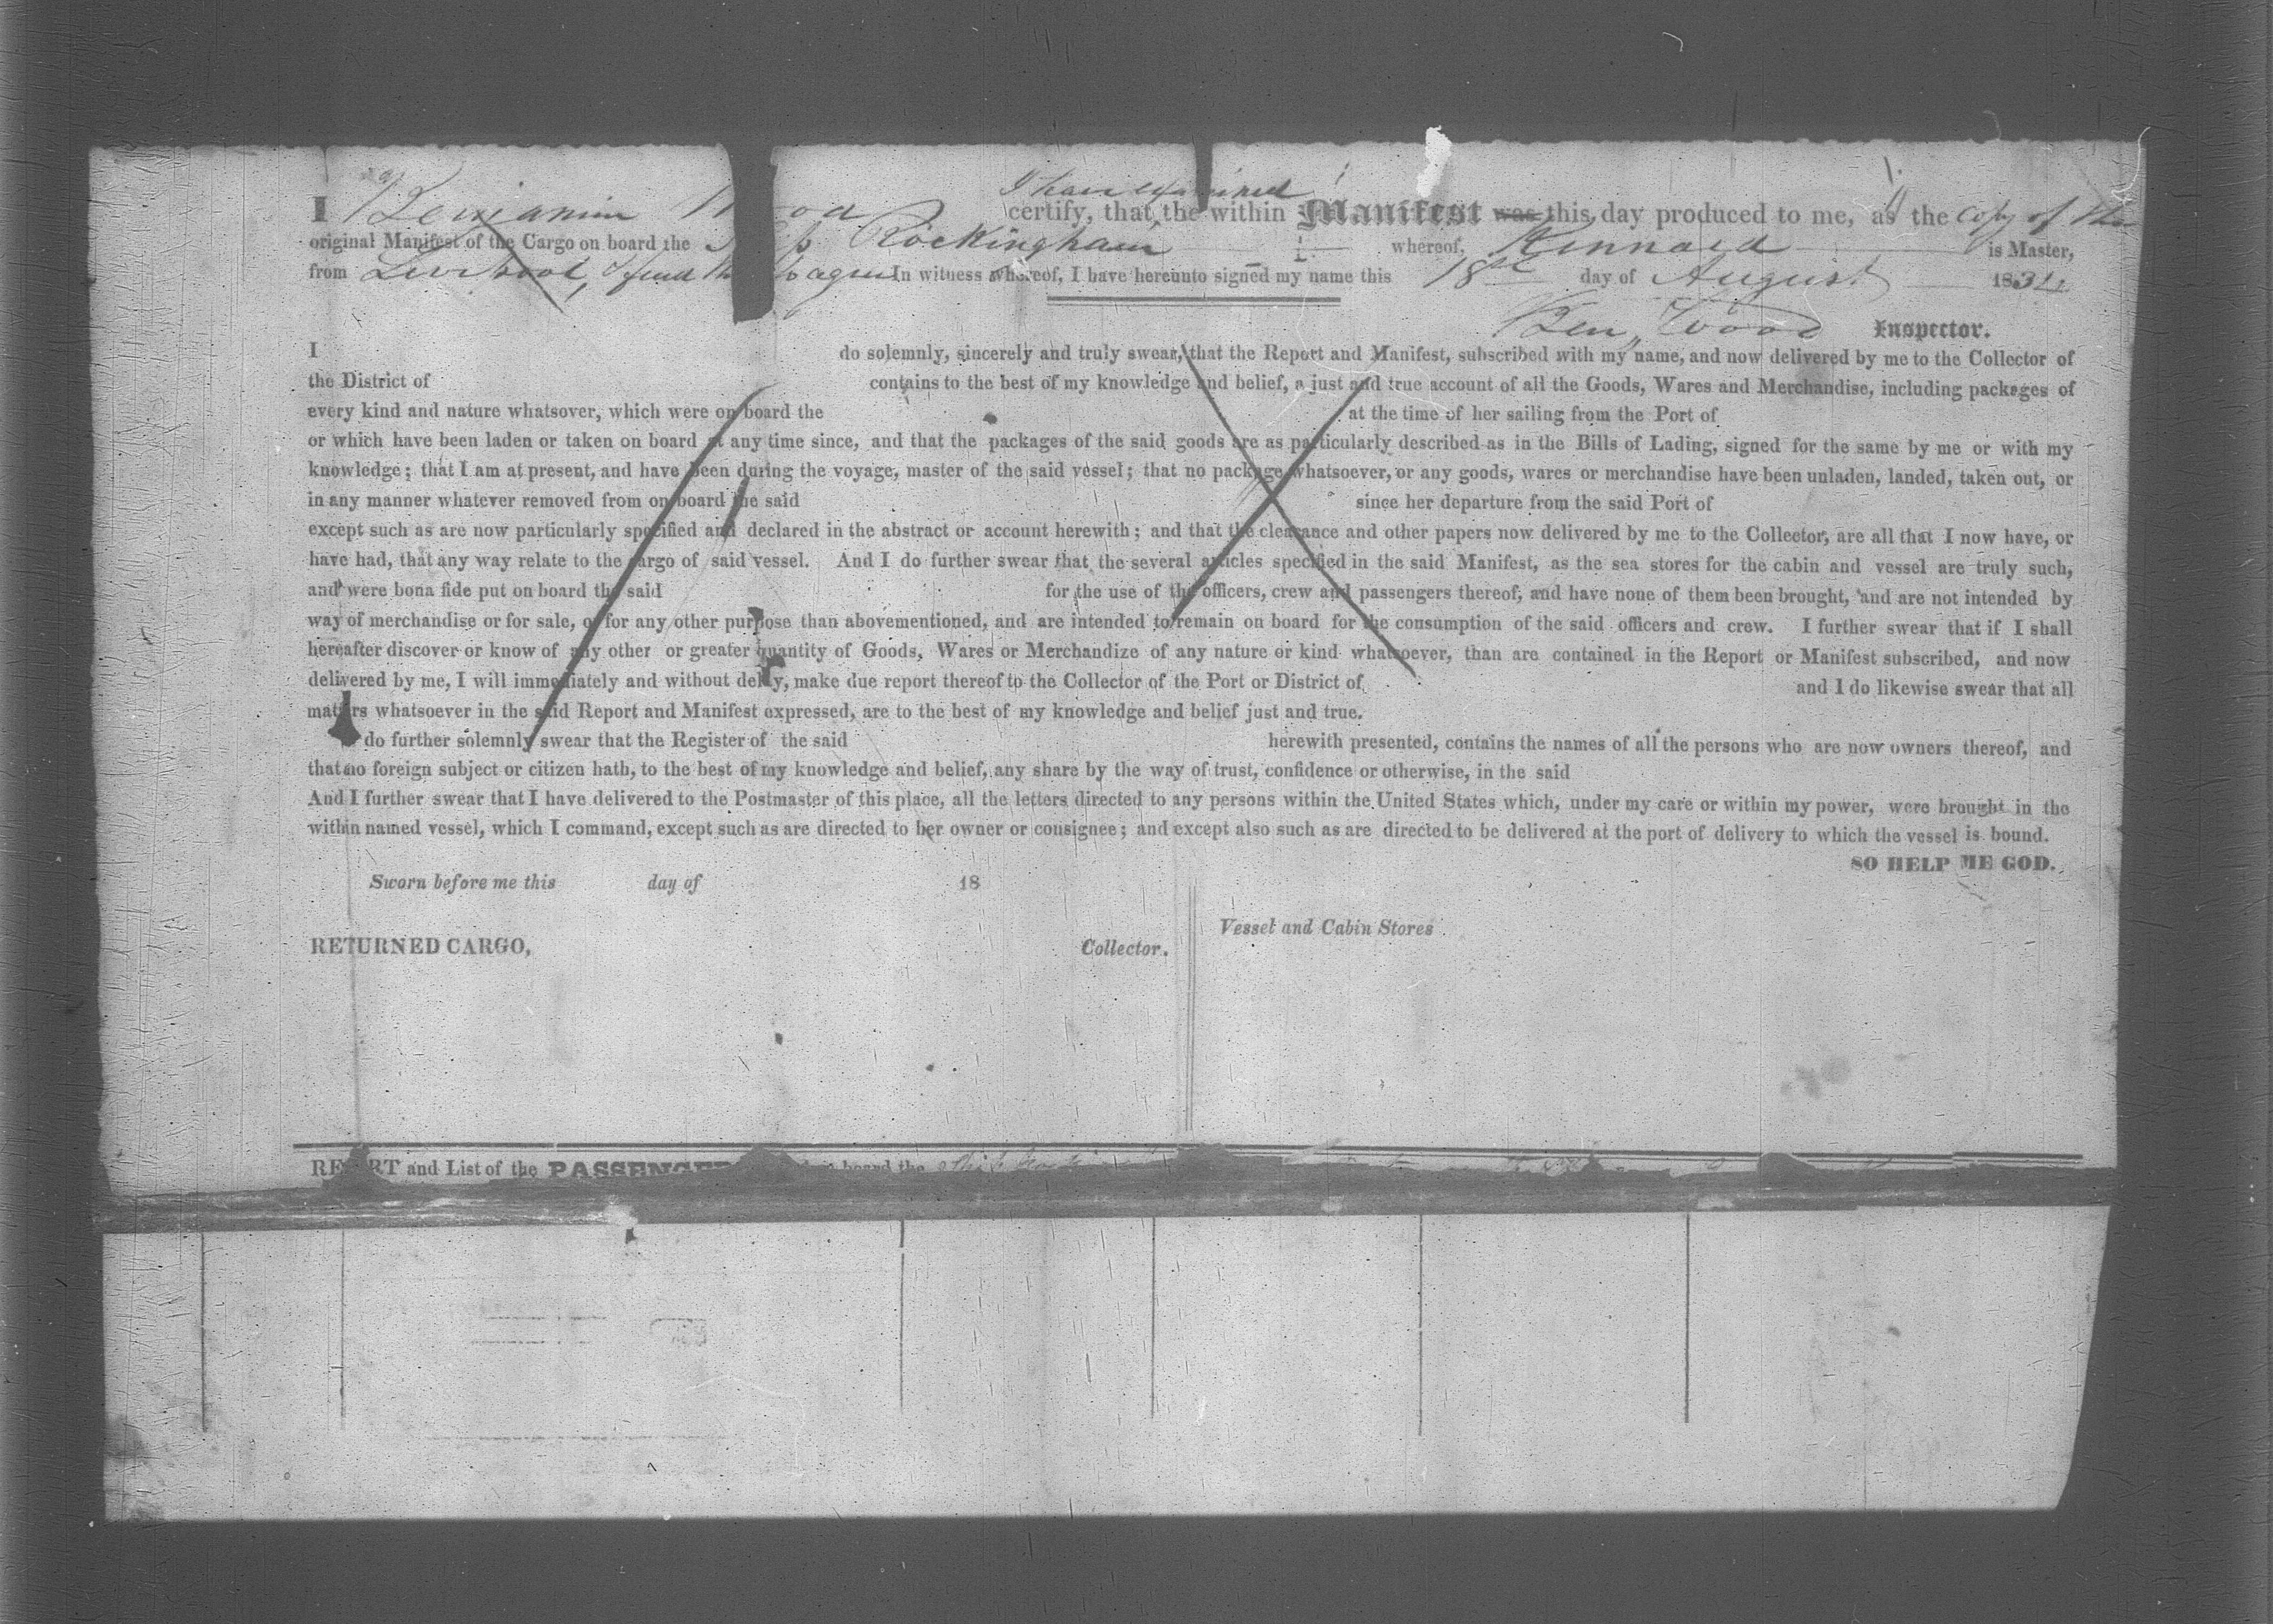 I have examined
I Benjamin W ood certify, that the within Manifest was this day produced to me, as the Copy of the
original Manifest of the Cargo on board the Ship Rockingham whereof, Kennard is Master,
from Liverpool, In witness whereof, I have hereunto signed my name this 18th day of August 1834
Ben, Wood Inspector.
I do solemnly, sincerely and truly swear, that the Report and Manifest, subscribed with my name, and now delivered by me to the Collector of
the District of contains to the best of my knowledge and belief, a just and true account of all the Goods, Wares and Merchandise, including packages of
every kind and nature whatsover, which were on board the at the time of her sailing from the Port of
or which have been laden or taken on board at any time since, and that the packages of the said goods are as particularly described as in the Bills of Lading, signed for the same by me or with my
knowledge; that I am at present, and have been during the voyage, master of the said vessel; that no package whatsoever, or any goods, wares or merchandise have been unladen, landed, taken out, or
in any manner whatever removed from on board the said since her departure from the said Port of
except such as are now particularly specified and declared in the abstract or account herewith; and that the clearance and other papers now delivered by me to the Collector, are all that I now have, or
have had, that any way relate to the cargo of said vessel. And I do further swear that the several articles specified in the said Manifest, as the sea stores for the cabin and vessel are truly such,
and were bona fide put on board the said for the use of the officers, crew and passengers thereof; and have none of them been brought, and are not intended by
way of merchandise or for sale, or for any other purpose than abovementioned, and are intended to remain on board for the consumption of the said officers and crew. I further swear that if I shall
hereafter discover or know of any other or greater quantity of Goods, Wares or Merchandize of any nature or kind whatsoever, than are contained in the Report or Manifest subscribed, and now
delivered by me, I will immediately and without delay, make due report thereof to the Collector of the Port or District of and I do likewise swear that all
matters whatsoever in the said Report and Manifest expressed, are to the best of my knowledge and belief just and true.
do further solemnly swear that the Register of the said herewith presented, contains the names of all the persons who are now owners thereof, and
that no foreign subject or citizen hath, to the best of my knowledge and belief, any share by the way of trust, confidence or otherwise, in the said
And I further swear that I have delivered to the Postmaster of this place, all the letters directed to any persons within the United States which, under my care or within my power, were brought in the
within named vessel, which I command, except such as are directed to her owner or consignee; and except also such as are directed to be delivered at the port of delivery to which the vessel is bound.
SO HELP ME GOD.
Sworn before me this day of 18
Vessel and Cabin Stores
RETURNED CARGO, Collector.
REPORT and List of the PASSENGER board the